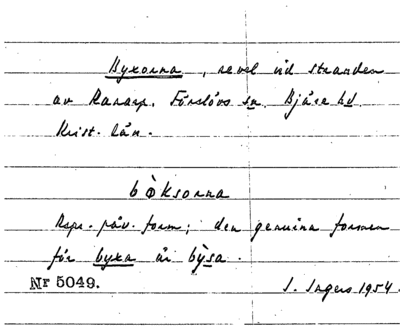 Byxorna, revel vid stranden
av Ranarp. Förslövs sn. Bjäre hd.
Krist. län.
bòksorna
Repr. räv. form; den genuina formen
för byxa är bỳsa.
Nr 5049.
I. Ingers 1954.